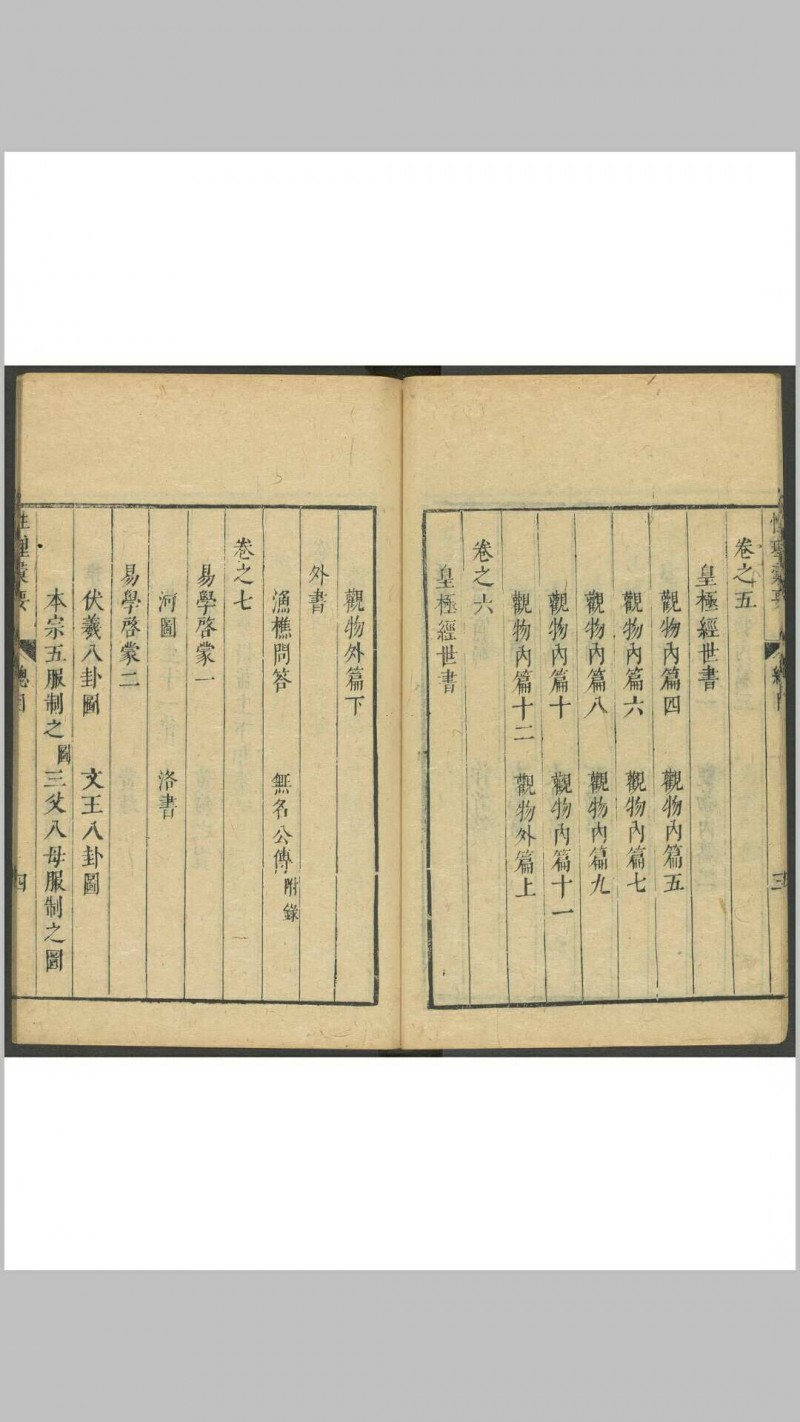 卷之五
皇極經世書
觀物內篇四 觀物內篇五
觀物內篇六 觀物內篇七
觀物內篇八 觀物內篇九
觀物內篇十 觀物內篇十一
觀物內篇十二 觀物外篇上
卷之六
皇極經世書
觀物外篇下
外書
漁樵問答 無名公傳附錄
卷之七
易學啓蒙一
河圖 洛書
易學啓蒙二
伏羲八卦圖 文王八卦圖
本宗五服制之圖 三父八母服制之圖
總目 四